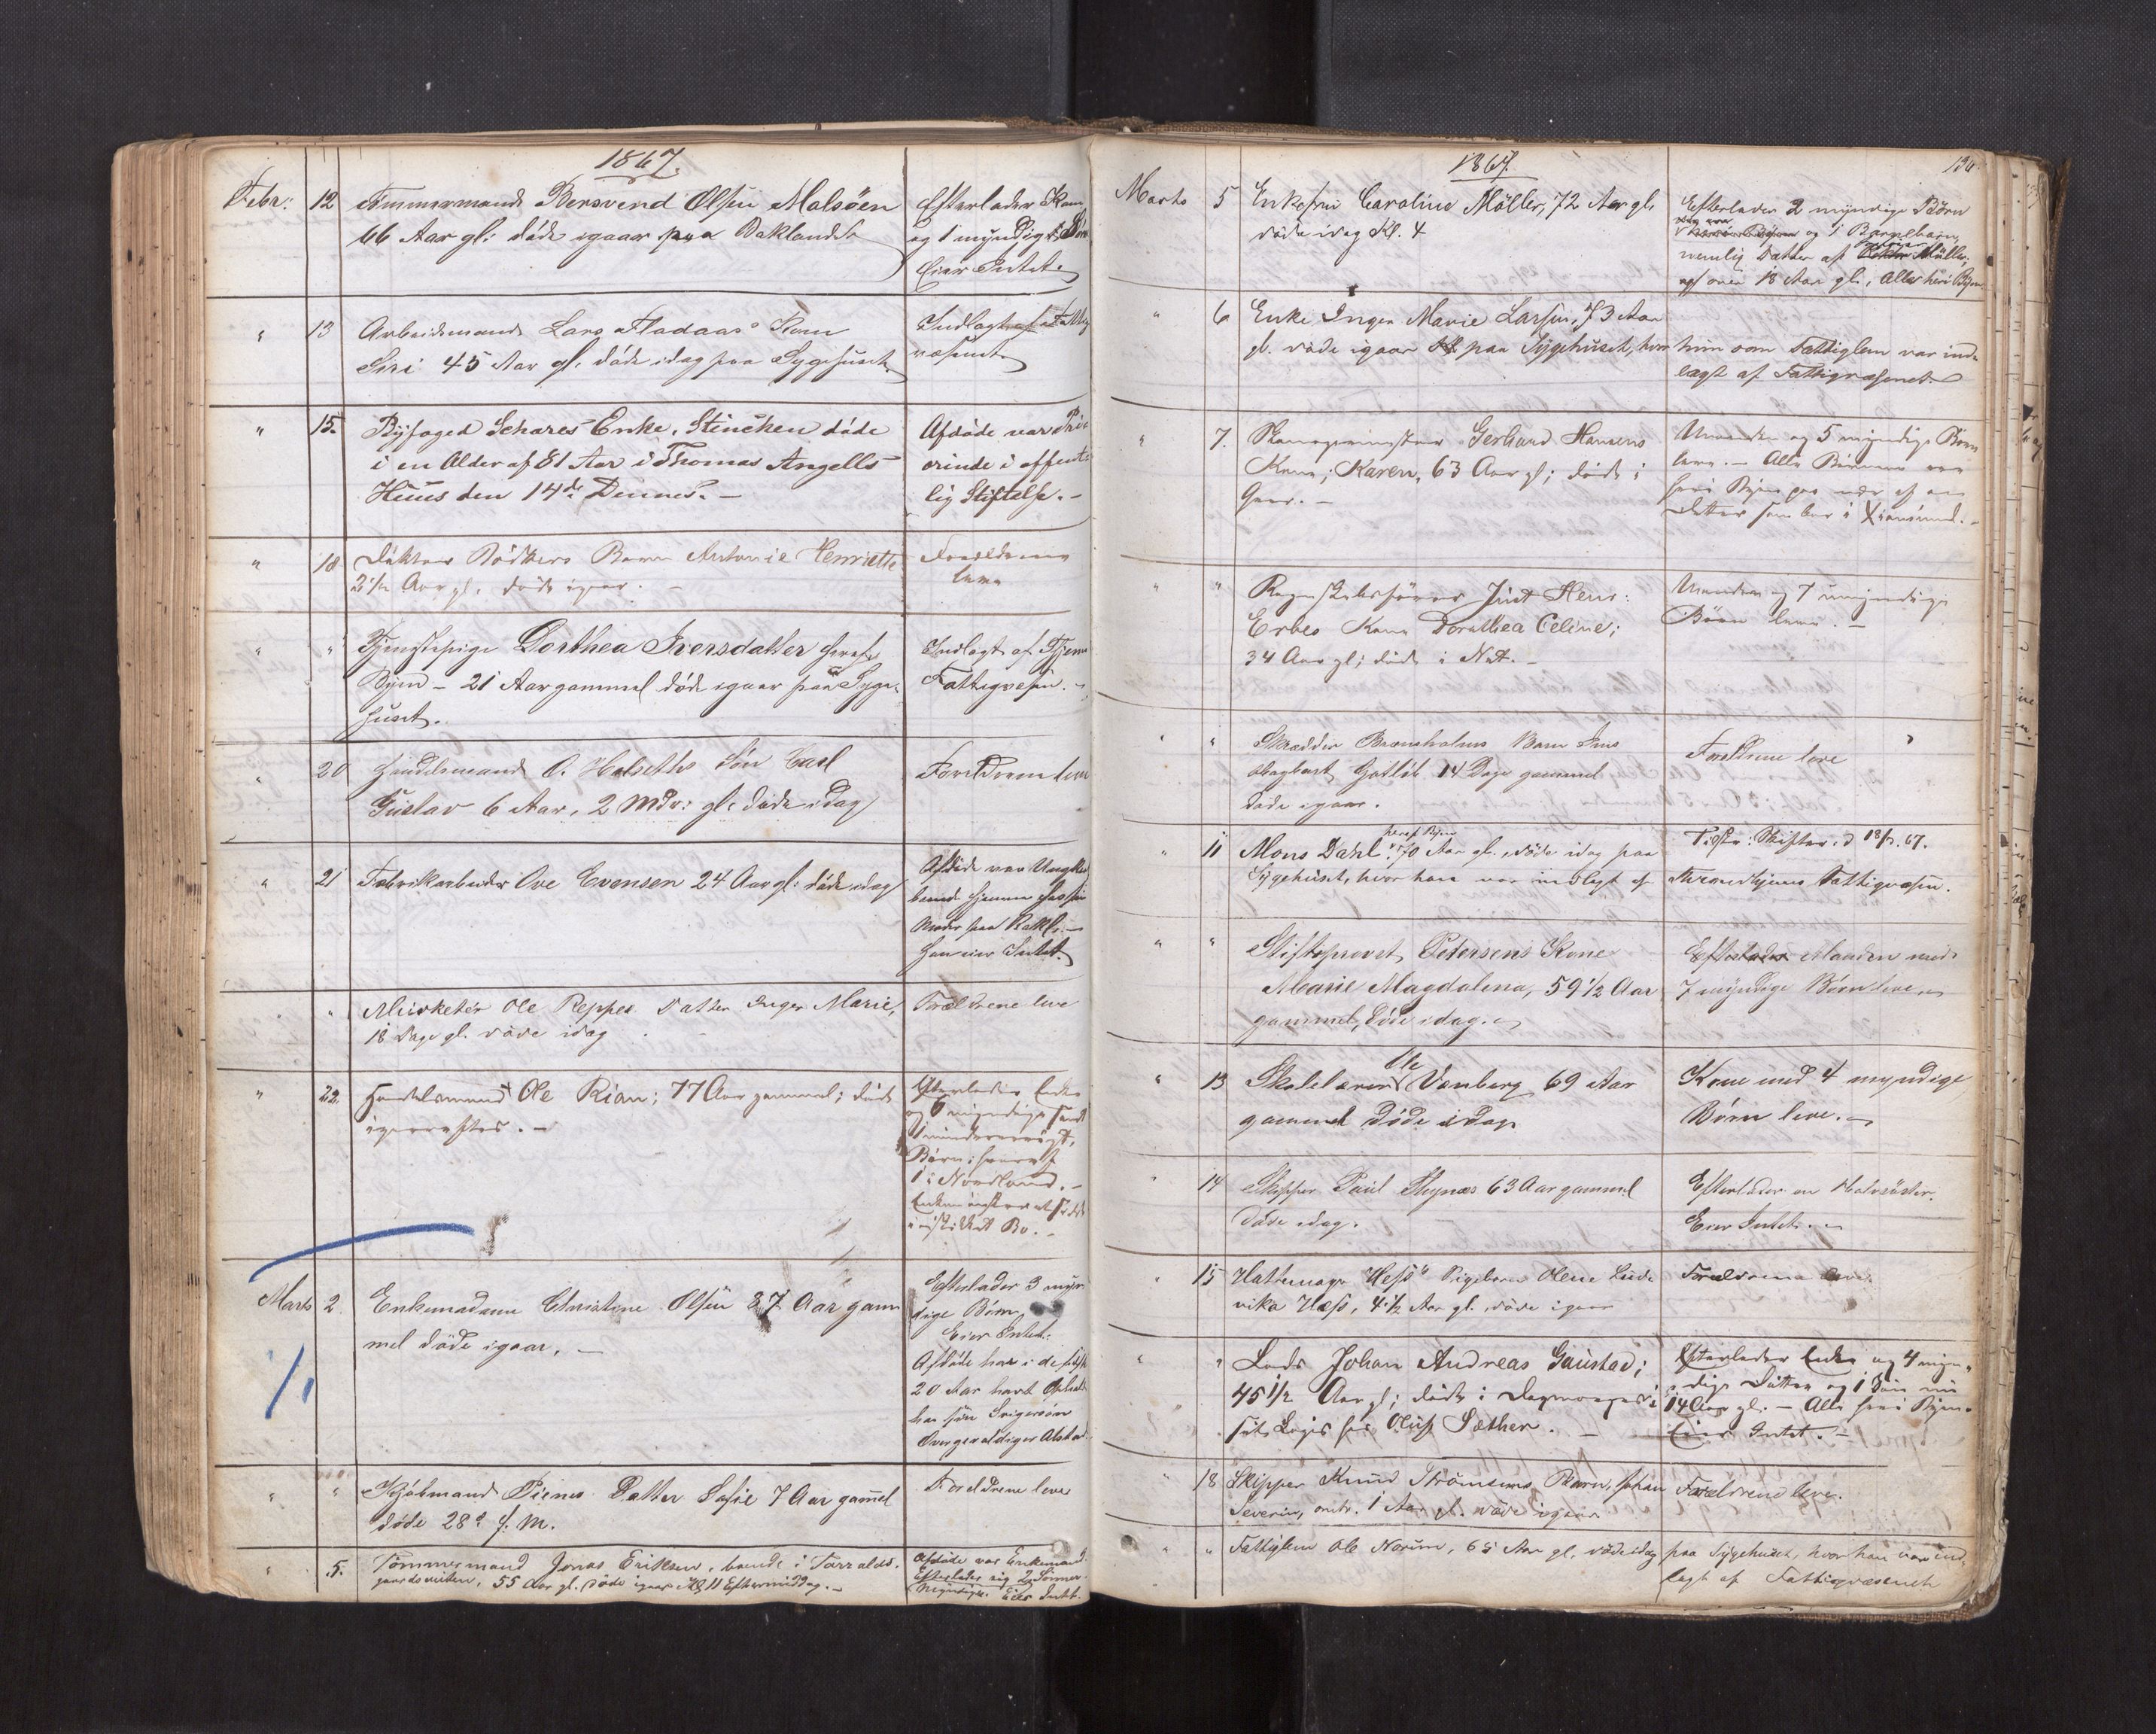 1867.
Febr: 12 Tømmermand Bersvend Olsen Malsöen
66 Aar gl: döde igaar paa Baklandet
Efterlader Kone
og 1 myndig
Eier Intet.
" 13 Arbeidsmand Lars Fladaas Kone
Siri 45 Aar gl: döde idag paa Sygehuset
Indlagt af Fattig
væsenet
" 15. Byfoged Schares Enke, Stinchen döde
i en Alder af 81 Aar i Thomas Angells
Huus den 14de Dennes. —
Afdöde var
i offent
lig Stiftelse. —
" 18 Doktor Bödkers Barn Antonie Henriette
2 1/2 Aar gl. döde igaar. —
Forældrene
leve
" " Tjenestepige Dorthea Iversdatter heraf
Byen — 21 Aar gammel döde igaar paa Syge-
huset.
Indlagt af
Fattigvesen. —
" 20 Handelsmand O. Halseths Sön Carl
Gustav 6 Aar, 2 Mdr: gl: döde idag
Foreldrene leve
" 21 Fabrikarbeider Ove Evensen 24 Aar gl: döde idag
Afdöde var Ungkarl
boende hjemme hos sin
Moder paa Bakl. —
Han eier Intet.
" " Musketér Ole Peppes Datter Inger Marie,
18 Dage gl. döde idag
Forældrene leve
" 22. Handelsmand Ole Rian; 77 Aar gammel; döde
igaaraftes. —
Efterlader Enke
og 6 myndige samt
1
Börn; hvoraf
1 i Nordland. —
Enken
i uskiftet Bo. —
Marts 2. Enkemadame Christine Olsen 87 Aar gam
mel döde igaar. —
Efterlader 3 myn
dige Börn,
Eier Intet.
Afdöde har i de sidste
20 Aar havt Ophold
hos sin Svigersön
" " Kjöbmand Pienes Datter Sofie 7 Aar gammel
döde 28de f. M.
Foreldrene leve
" 5. Tömmermand Jonas Eriksen, boende i
55 Aar gl. döde igaar Kl. 11 Eftermiddag. —
Afdöde var Enkemand.
Efterlader sig 2 Sönner
Myndige. Eier Intet.
1867.
Marts 5 Enkefru Caroline Möller, 72 Aar gl,
döde idag Kl. 4
Efterlader 2 myndige Börn
og 1 Barnebarn,
nemlig Datter af Möller,
over 18 Aar gl, Alle her i Byen.
" 6 Enke Inger Marie Larsen, 73 Aar
gl. döde igaar paa Sygehuset, hvor
hun som Fattiglem var ind-
lagt af Fattigvæsenet.
" 7. Gerhard Hansens
Kone; Karen, 63 Aar gl; döde i
Gaar. —
Manden og 5 myndige Börn
leve. — Alle Börnene ere
her i Byen paa nær af en
Datter som bor i Xiansund. —
" " Regnskabsförer Just Henr:
Erbes Kone Dorothea Celine;
34 Aar gl; döde i Nat. —
Manden og 7 umyndige
Börn leve. —
" " Skrædder Barn Jens
Gotlob 14 Dage gammel
döde igaar.
Foreldrene leve
" 11 Mons Dahl heraf Byen 70 Aar gl., döde idag paa
Sygehuset, hvor han var indlagt af
18/3. 67.
Trondhjems Fattigvæsen.
" " Stiftsprovst Petersens Kone
Marie Magdalena, 59 1/2 Aar
gammel, döde idag.
Efterlader Manden med
7 myndige Börn leve
" 13 Skolelærer Ole Vanberg 69 Aar
gammel döde idag
Kone med 4 myndige
Börn leve. —
" 14 Skipper Paul 63 Aar gammel
döde idag.
Efterlader en Halvsöster.
Eier Intet. —
" 15 Hattemager Hess' Pigebarn Olene Lude
vika Hess, 4 1/2 Aar gl. döde igaar
Forældrene leve.
" " Lods Johan Andreas Gaustad;
45 1/2 Aar gl; döde i Dag i
sit Logis hos Oluf Sæther. —
Efterlader Enke og 4 myn-
dige Dötre og 1 Sön
14 Aar gl. — Alle her i Byen.
Eier Intet. —
" 18 Skipper Knud Strömsems Barn, Johan
Severin, omtr. 1 Aar gl. döde igaar.
Forældrene leve.
" " Fattiglem Ole Norum, 65 Aar gl, döde idag
paa Sygehuset, hvor han var ind-
lagt af Fattigvæsenet